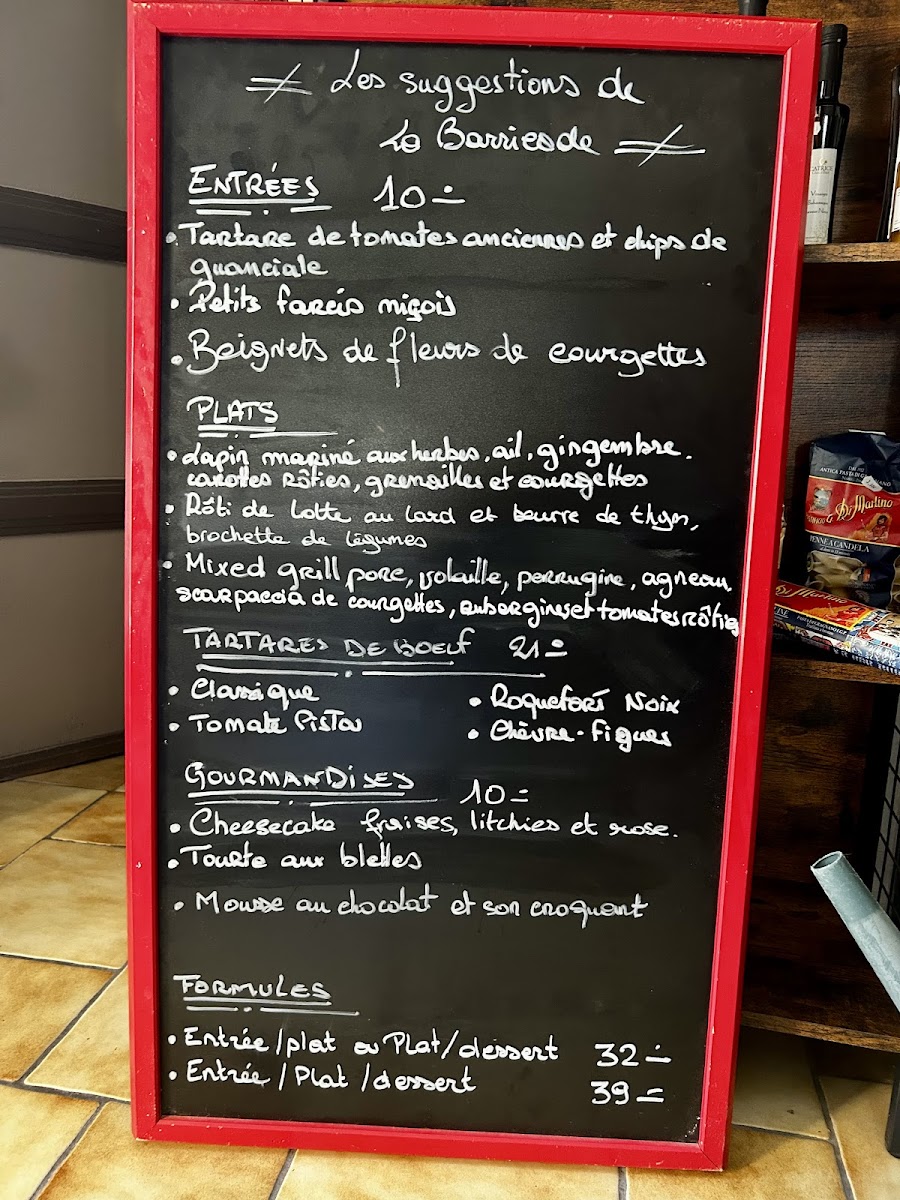 Les suggestions de
La Barricade
ENTRÉES 10.-
• Tartare de tomates anciennes et chips de
guanciale
• Petits farcis niçois
• Beignets de fleurs de courgettes
PLATS
• Lapin mariné aux herbes, ail, gingembre.
carottes rôties, grenailles et courgettes
• Rôti de Lotte au lard et beurre de thym,
brochette de légumes
• Mixed grill porc, volaille, perrugine, agneau,
scarpaccia de courgettes, aubergines et tomates rôties
TARTARES DE BOEUF 21.-
• Classique
• Roquefort Noix
• Tomate Pistou
• Chèvre-Figues
GOURMANDISES 10.-
• Cheesecake fraises, litchies et rose.
• Tourte aux blettes
• Mousse au chocolat et son croquant
FORMULES
• Entrée/plat ou Plat/dessert 32.-
• Entrée/Plat/dessert 39.-
Di Martino
PENNE A CANDELA